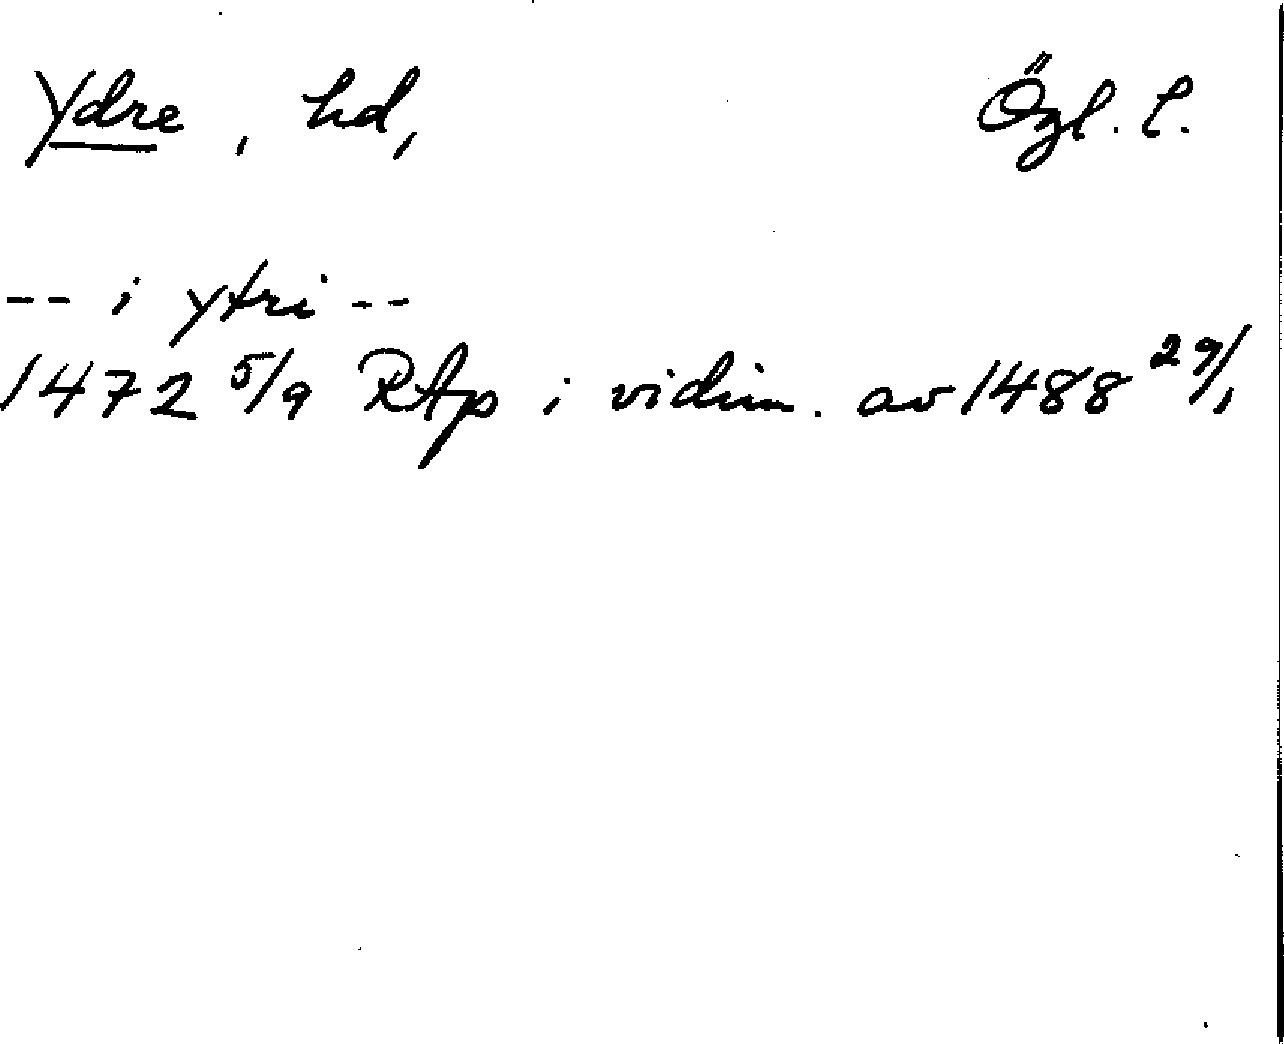 Ydre, hd, Ögl. l.
-- i ytri --
1472 5/9 RAp i vidim. av 1488 29/1